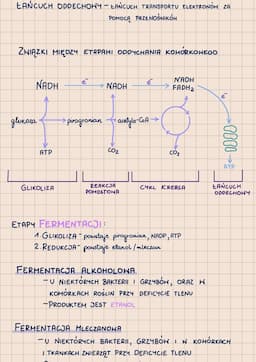 ŁAŃCUCH ODDECHOWY – ŁAŃCUCH TRANSPORTU ELEKTRONÓW ZA
POMOCĄ PRZENOŚNIKÓW
ZWIĄZKI MIĘDZY ETAPAMI ODDYCHANIA KOMÓRKOWEGO
NADH e⁻ NADH e⁻ NADH
FADH₂
e⁻
glukoza pirogronian acetylo-CoA
ATP CO₂ CO₂ ATP
GLIKOLIZA REAKCJA POMOSTOWA CYKL KREBSA ŁAŃCUCH ODDECHOWY
ETAPY FERMENTACJI:
1. GLIKOLIZA - powstaje pirogronian, NADP, ATP
2. REDUKCJA - powstaje etanol / mleczan
FERMENTACJA ALKOHOLOWA
- U NIEKTÓRYCH BAKTERII I GRZYBÓW, ORAZ W
KOMÓRKACH ROŚLIN PRZY DEFICYCIE TLENU
- PRODUKTEM JEST ETANOL
FERMENTACJA MLECZANOWA
- U NIEKTÓRYCH BAKTERII, GRZYBÓW I W KOMÓRKACH
I TKANKACH ZWIERZĄT PRZY DEFICYCIE TLENU